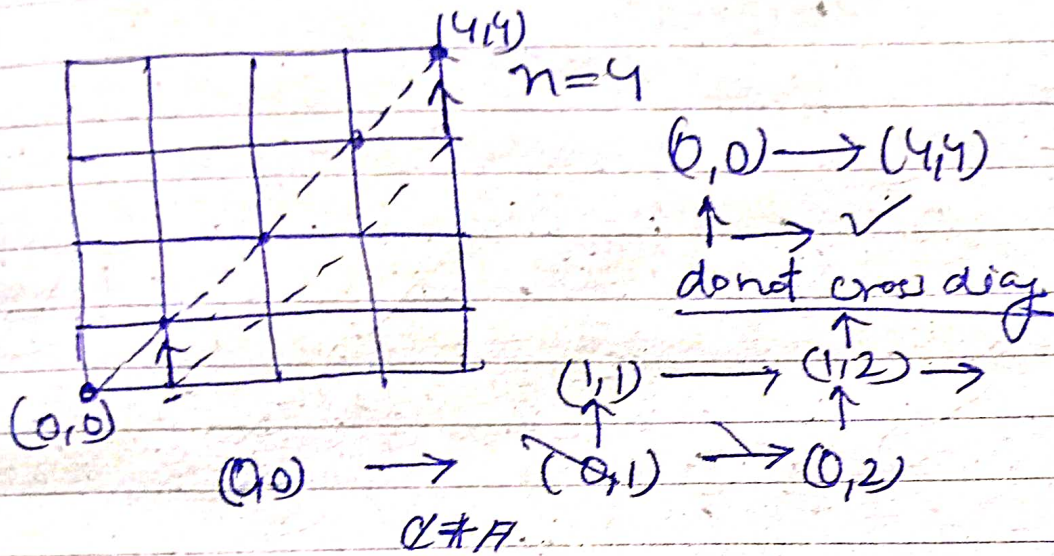 (4,4)
n=4
(0,0) → (4,4)
↑ → ✓
do not cross diag
(1,1) → (1,2) →
(0,0)
(0,0) → (0,1) → (0,2)